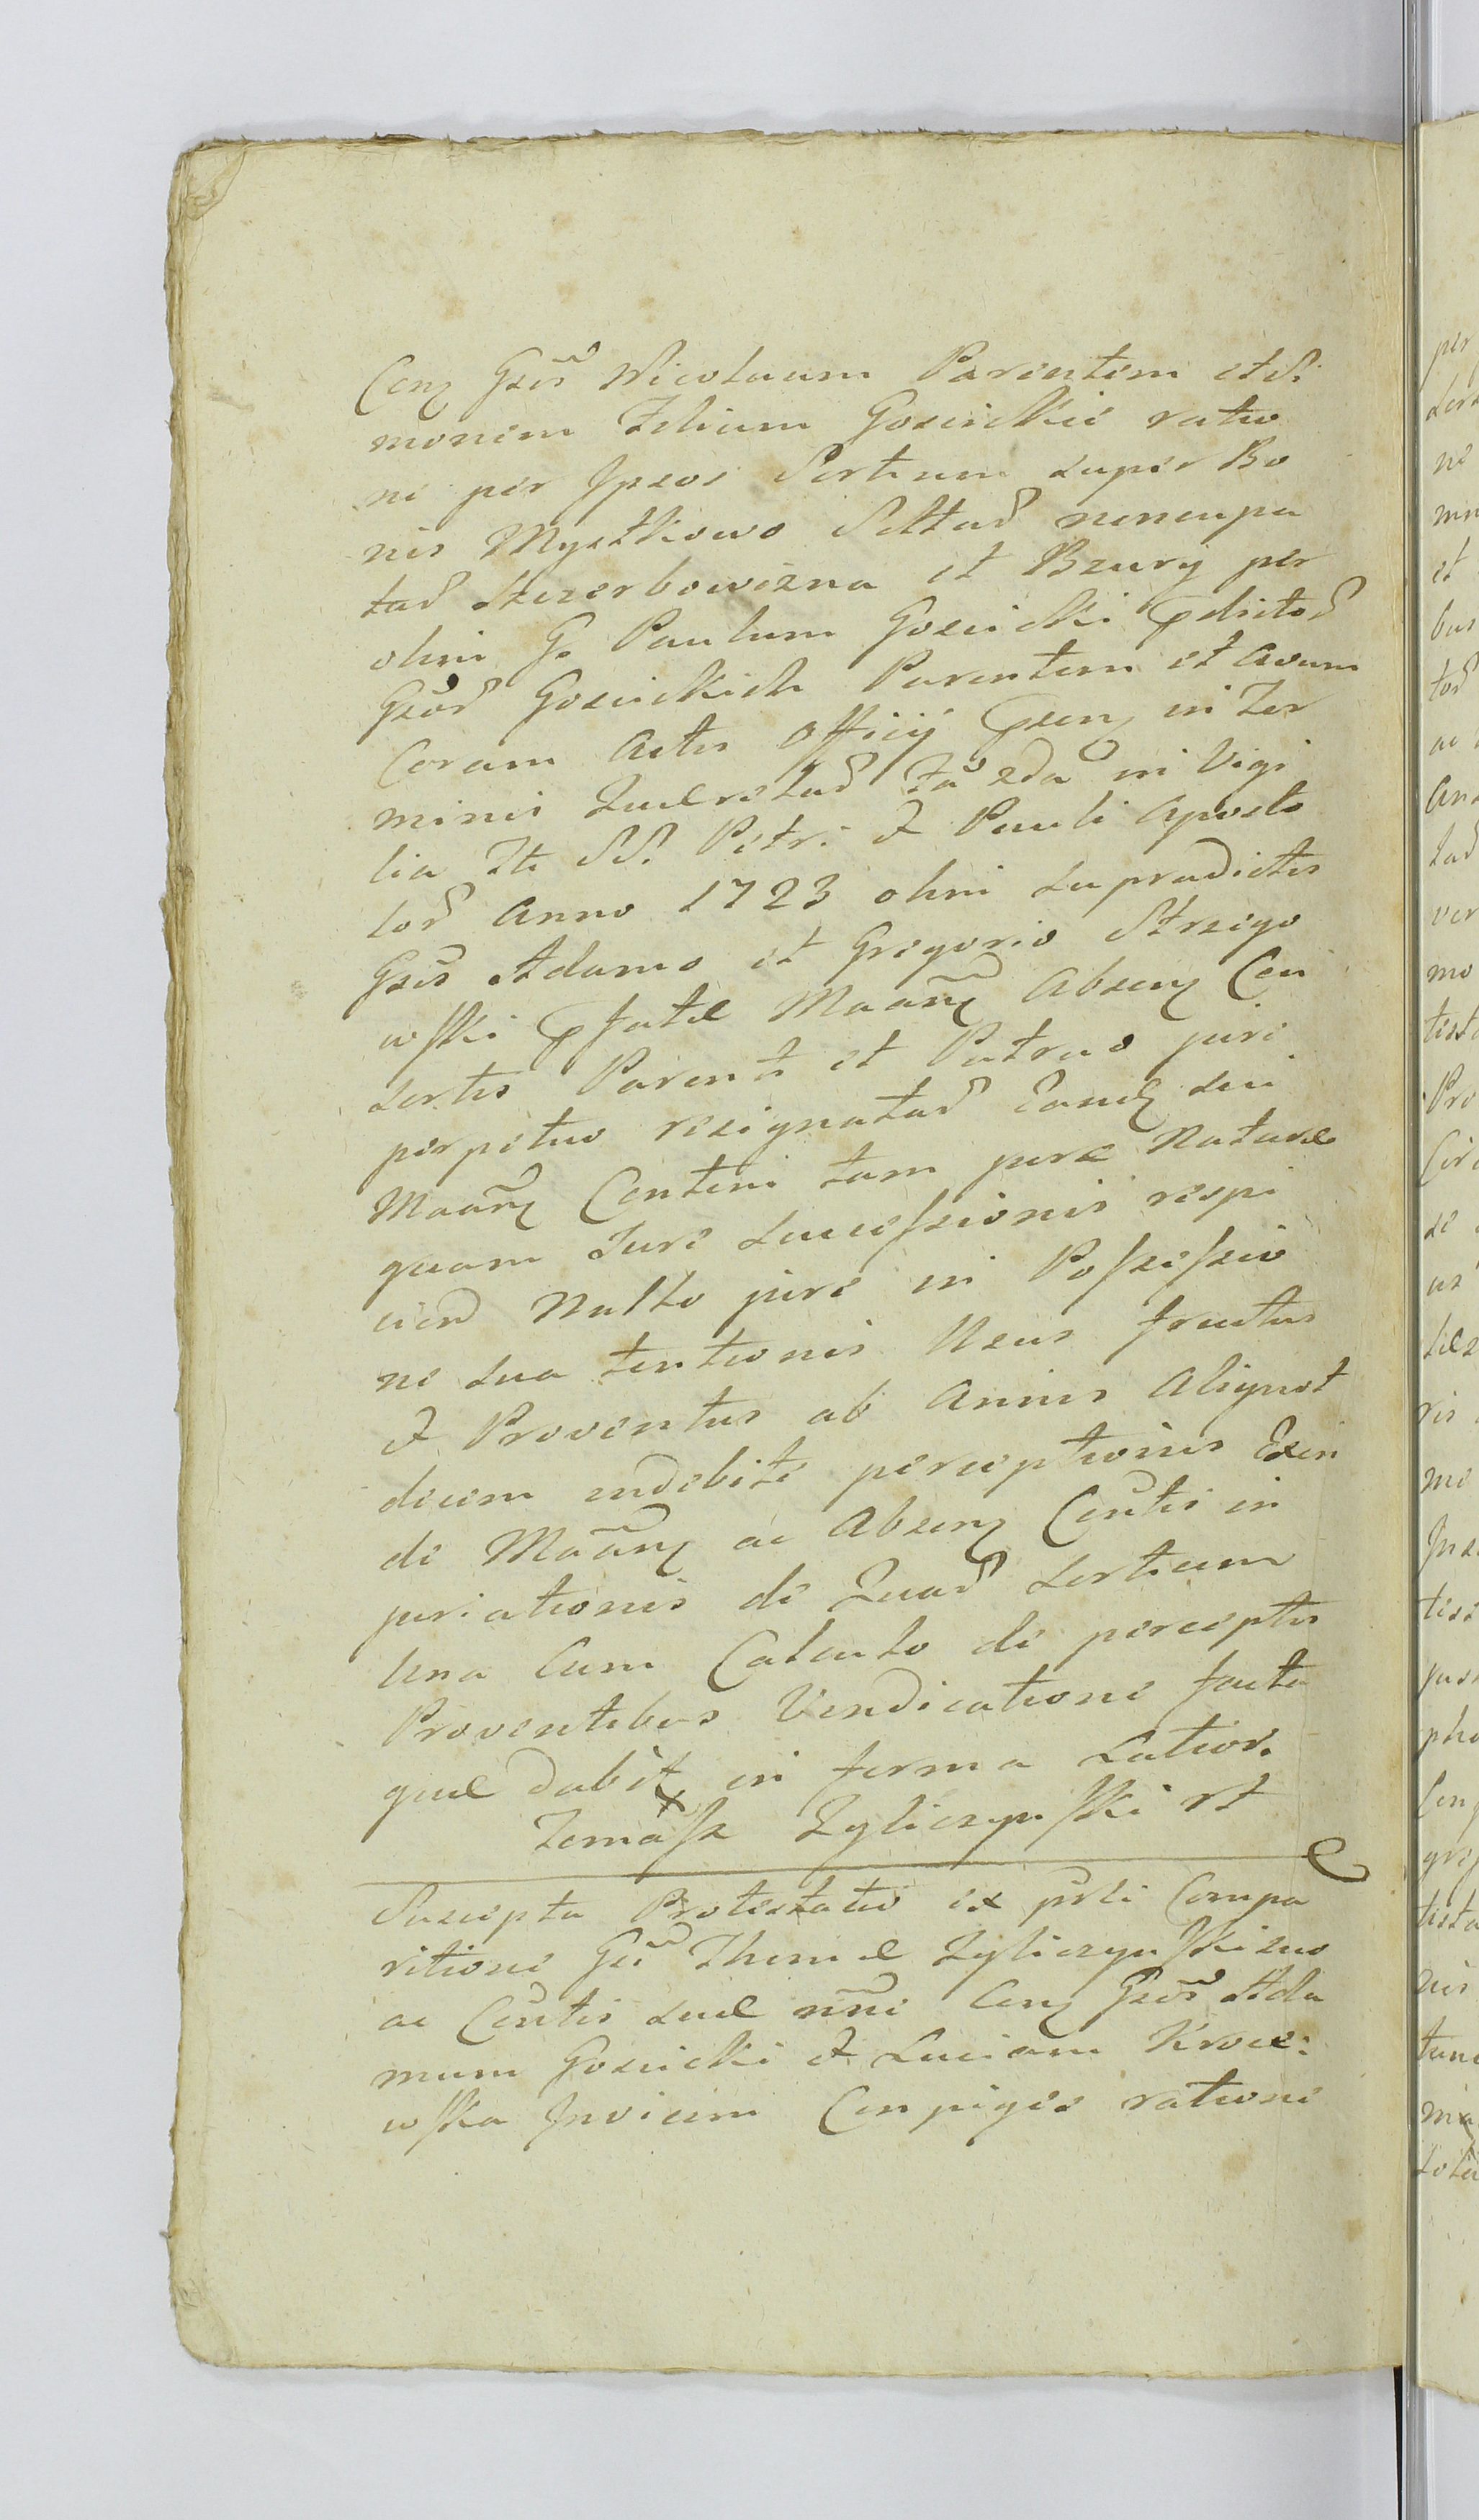 Conȝ Gsos Nicolaum Parentem et Si
monem Filium Goscickie ratio
ne per Ipsos Sortium super Bo
nis Mystkowo Sltar nuncupa
tar Szczerbowizna et Bzury per
olim G. Paulum Goscicki pdictor
Gsor Goscickich Parentem et Avum
Coram Actis Officij in Ter
minis Fa 2da in Vigi
lia SS. Petri & Pauli Aposto
lor Anno 1723 olim supradictis
Gsis Adamo et Gregorio Strzego
wski pfatæ Maanȝ Absenȝ Con
sortis Parenti et Patruo juri
perpetuo resignatar Eandȝ sui
Maanȝ Contení tam jure Naturæ
quam Jure successionis respi
cien Nullo jure in Possessio
ne sua tentionis Usus fructus
& Proventus ab Annis Aliquot
decem indebite perceptionis Exin
de Maanȝ ac Absenȝ Contis in
juriationis de Quar Sortium
Una Cum Calculo de perceptis
Proventibus Vindicatione facta
quæ dabit in forma Latiori
Tomasz Zyliczynski
Suscepta Protestatio ex psli Compa
ritione Gsi Thomæ Zyliczynski suo
ac Contis suæ nni Conȝ Gsos Ada
mum Goscicki & Luciam
wska Invicem Conjuges ratione